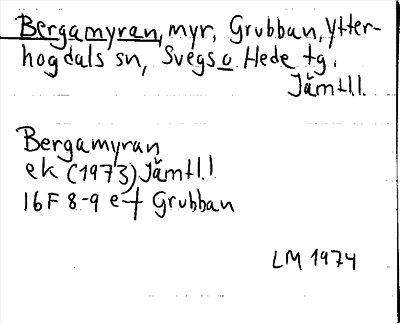 Bergamyran, myr, Grubban, Ytter-
hogdals sn, Svegs o Hede tg.
Jämtl.l.
Bergamyran
ek (1973) Jämtl.l
16F 8-9 e-f Grubban
LM 1974